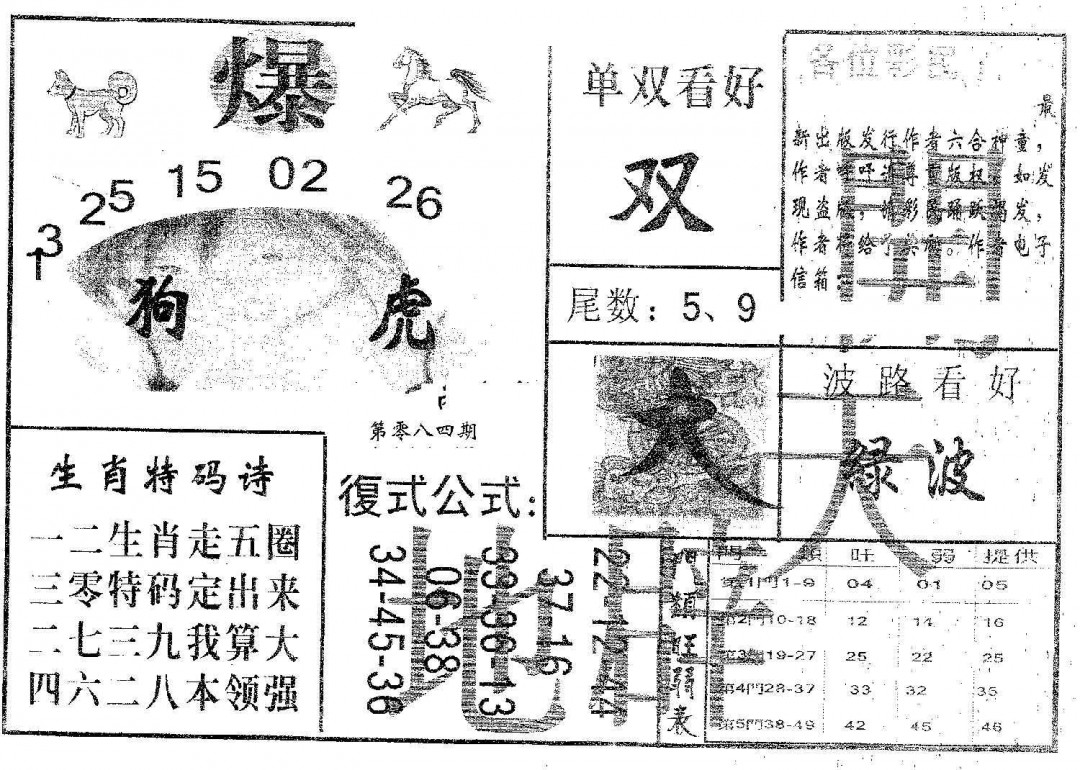 爆
31
25
15
02
26
狗
虎
第零八四期
生肖特码诗
一二生肖走五圈
三零特码定出来
二七三九我算大
四六二八本领强
復式公式:
34-45-36
06-38
33-36-13
37-16
22-12-44
单双看好
双
尾数：5、9
大
各位彩民
最
新出版发行作者六合神童，
作者呼吁请尊重版权，如发
现盗版，请彩民踊跃揭发，
作者将给予奖励。作者电子
信箱：
波路看好
绿波
門類旺弱表
門 類 旺 弱 提供
第1門1-9 04 01 05
第2門10-18 12 14 16
第3門19-27 25 22 25
第4門28-37 33 32 35
第5門38-49 42 45 46